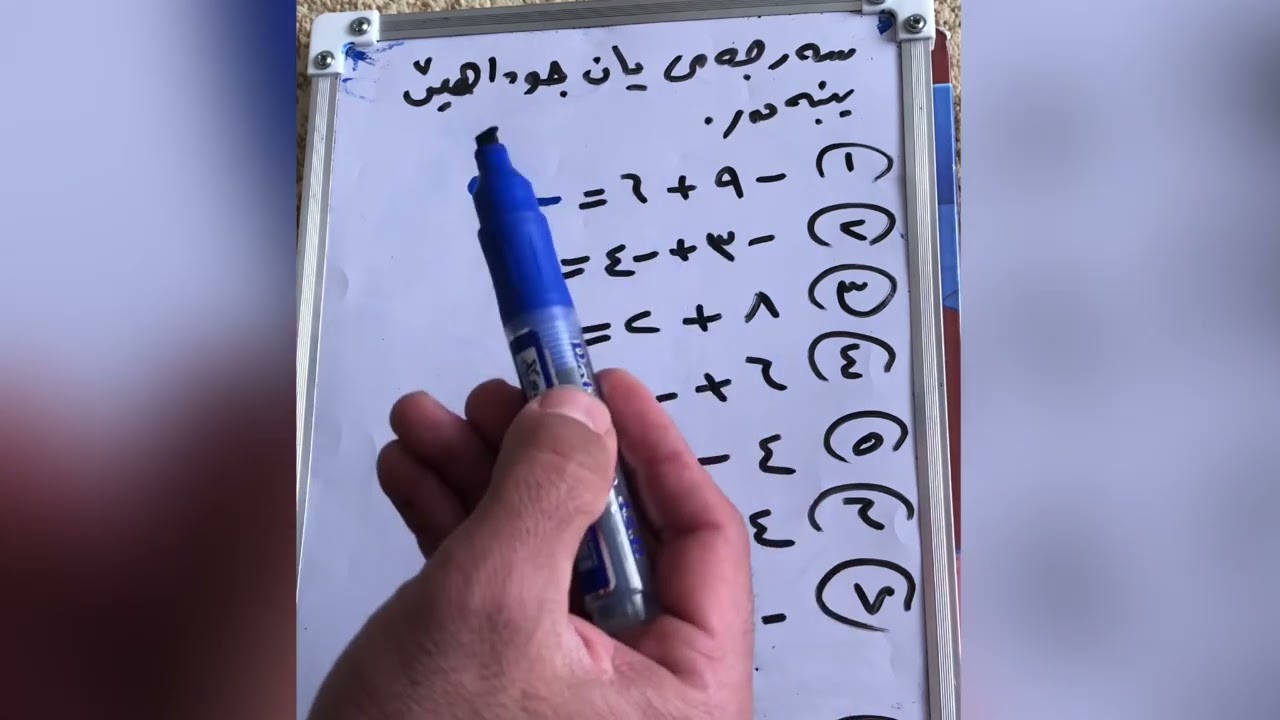 سەرجەمی یان جوداهیێ
بینە دەر.
(١) - ٩ + ٦ = -
(٢) - ٣ + -٤ =
(٣) ٨ + =
(٤) ٦ + -
(٥) ٤ -
(٦) ٤
(٧) -